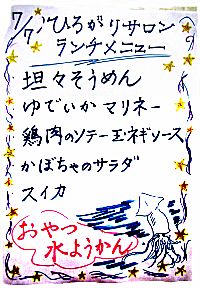 7/7 ひろがりサロン
ランチメニュー
坦々そうめん
ゆでいかマリネー
鶏肉のソテー玉ネギソース
かぼちゃのサラダ
スイカ
おやつ
水ようかん